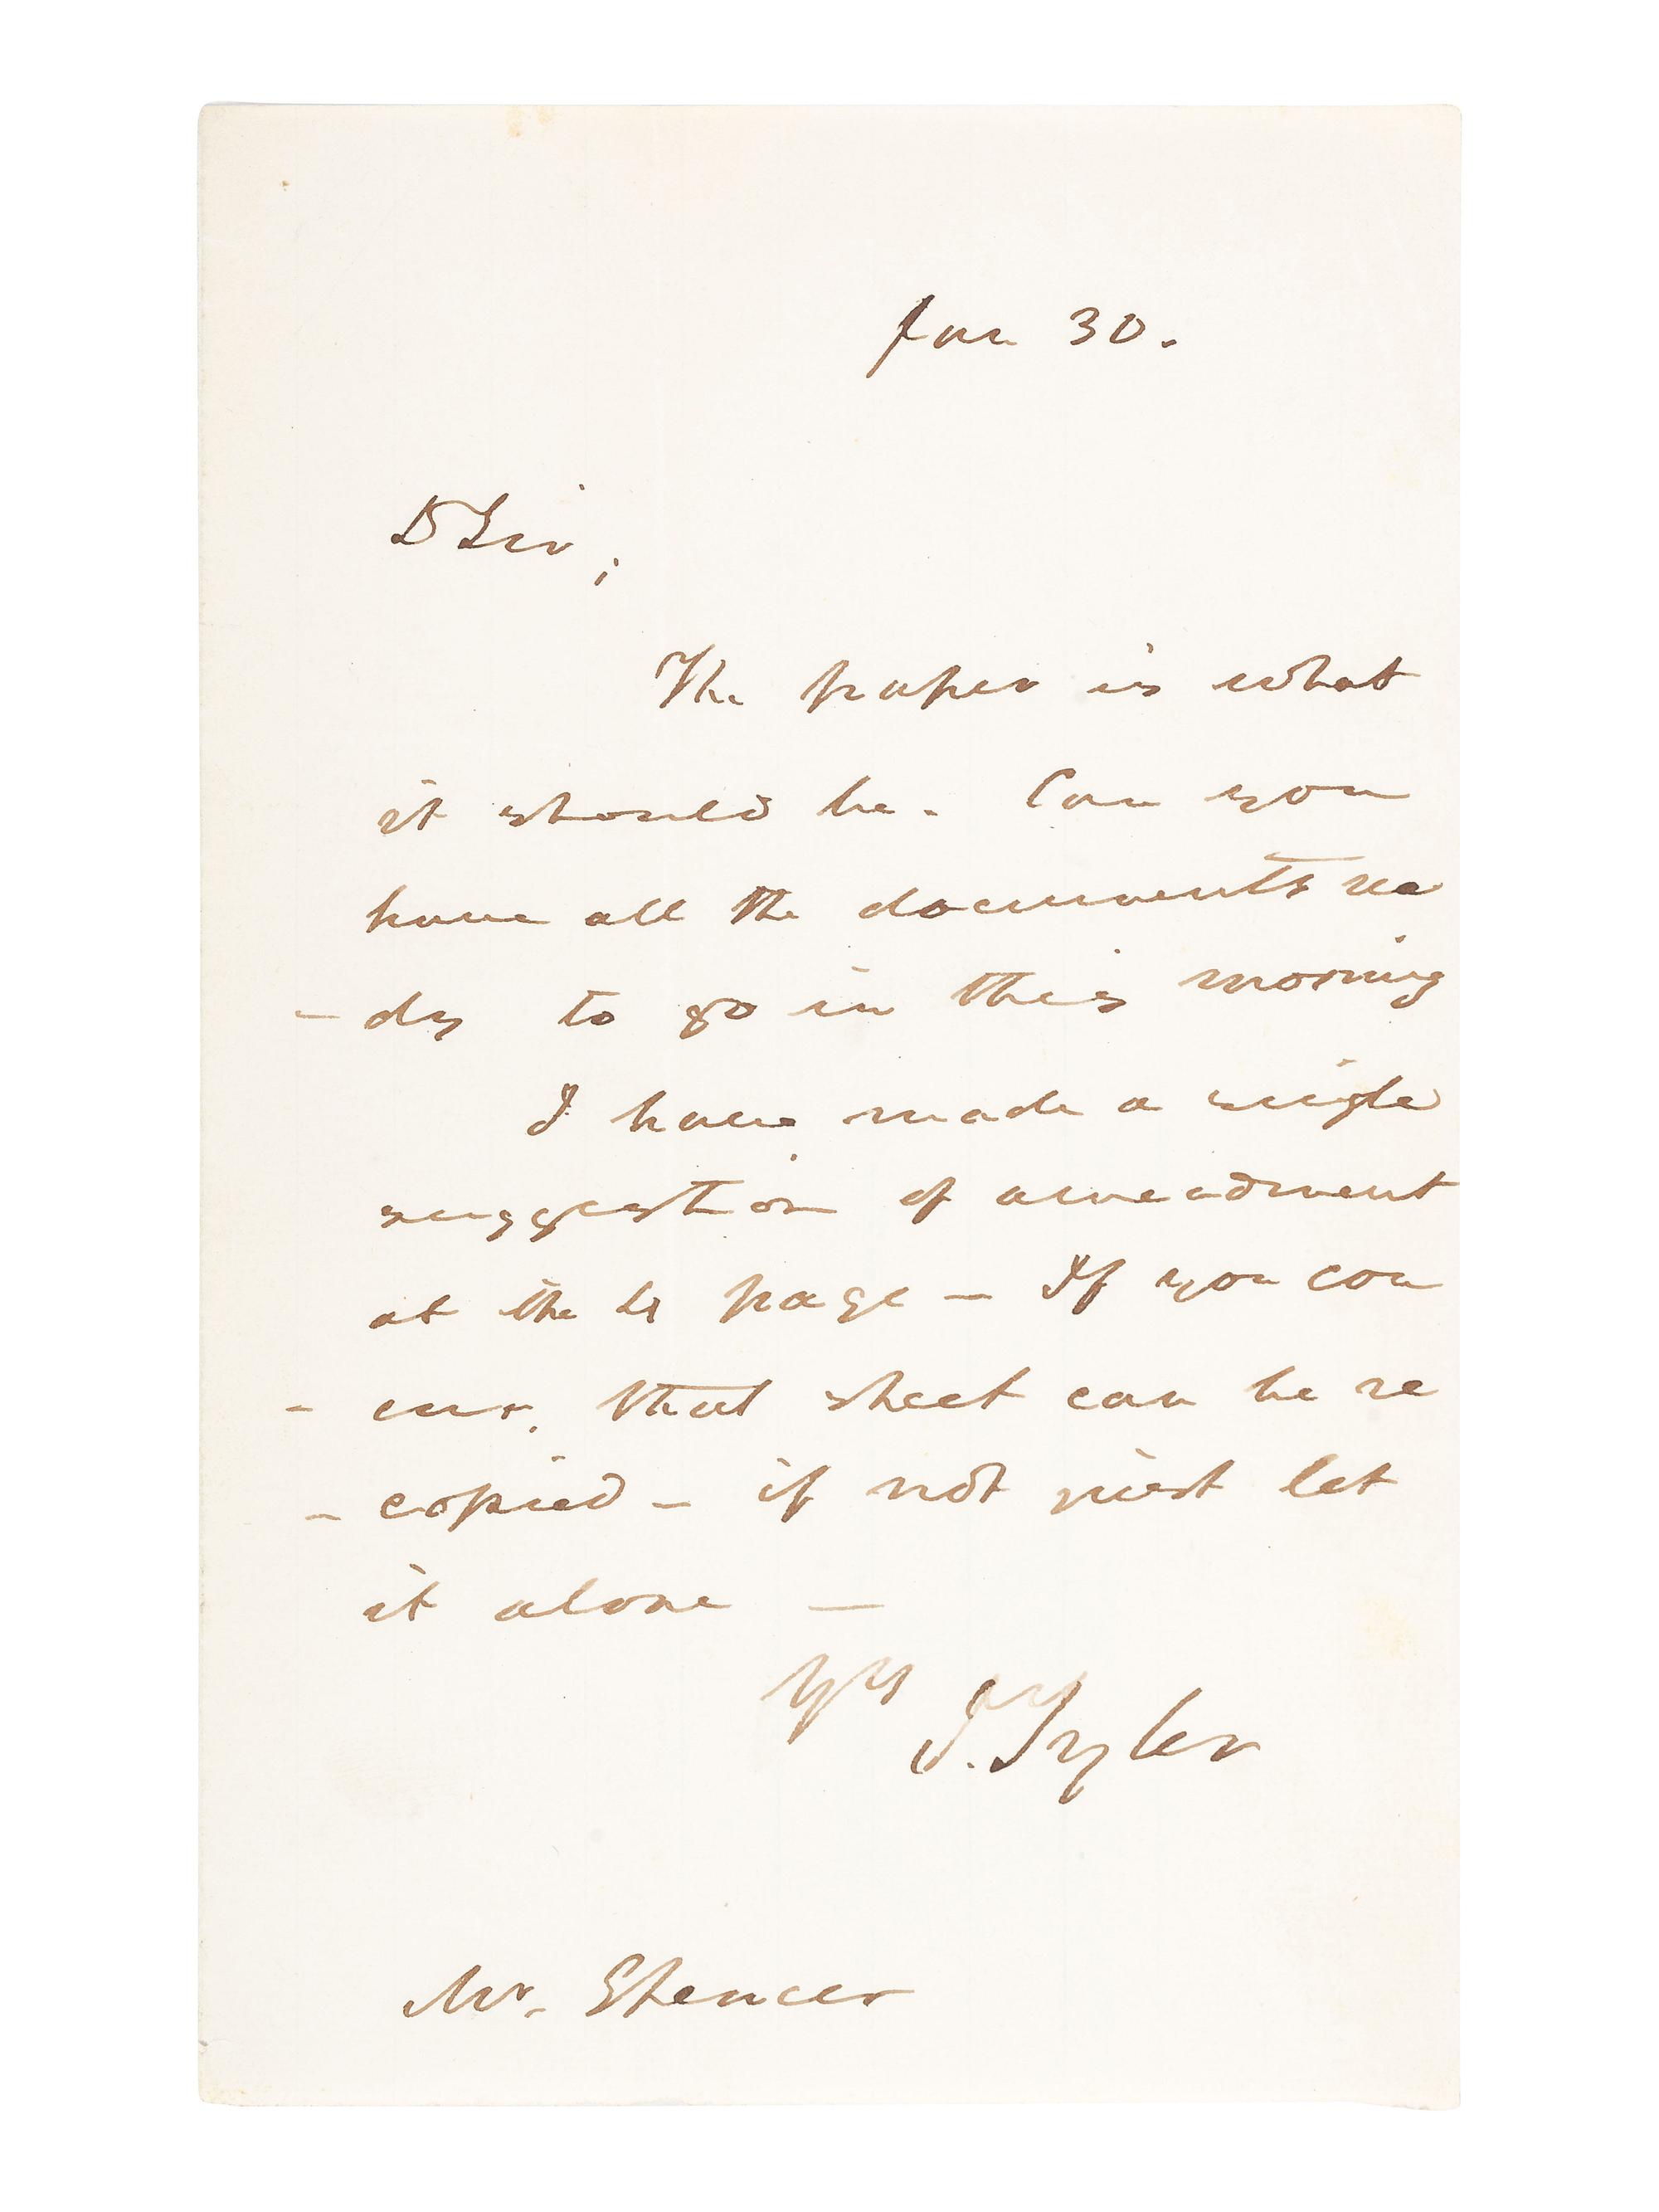 Jan 30.
D Sir,
The paper is what
it should be. Can you
have all the documents rea
-dy to go in this morning
I have made a single
suggestion of amendment
at the 4 page – If you con
-cur, that sheet can be re
-copied – if not just let
it alone –
Yrs J. Tyler
Mr. Spencer